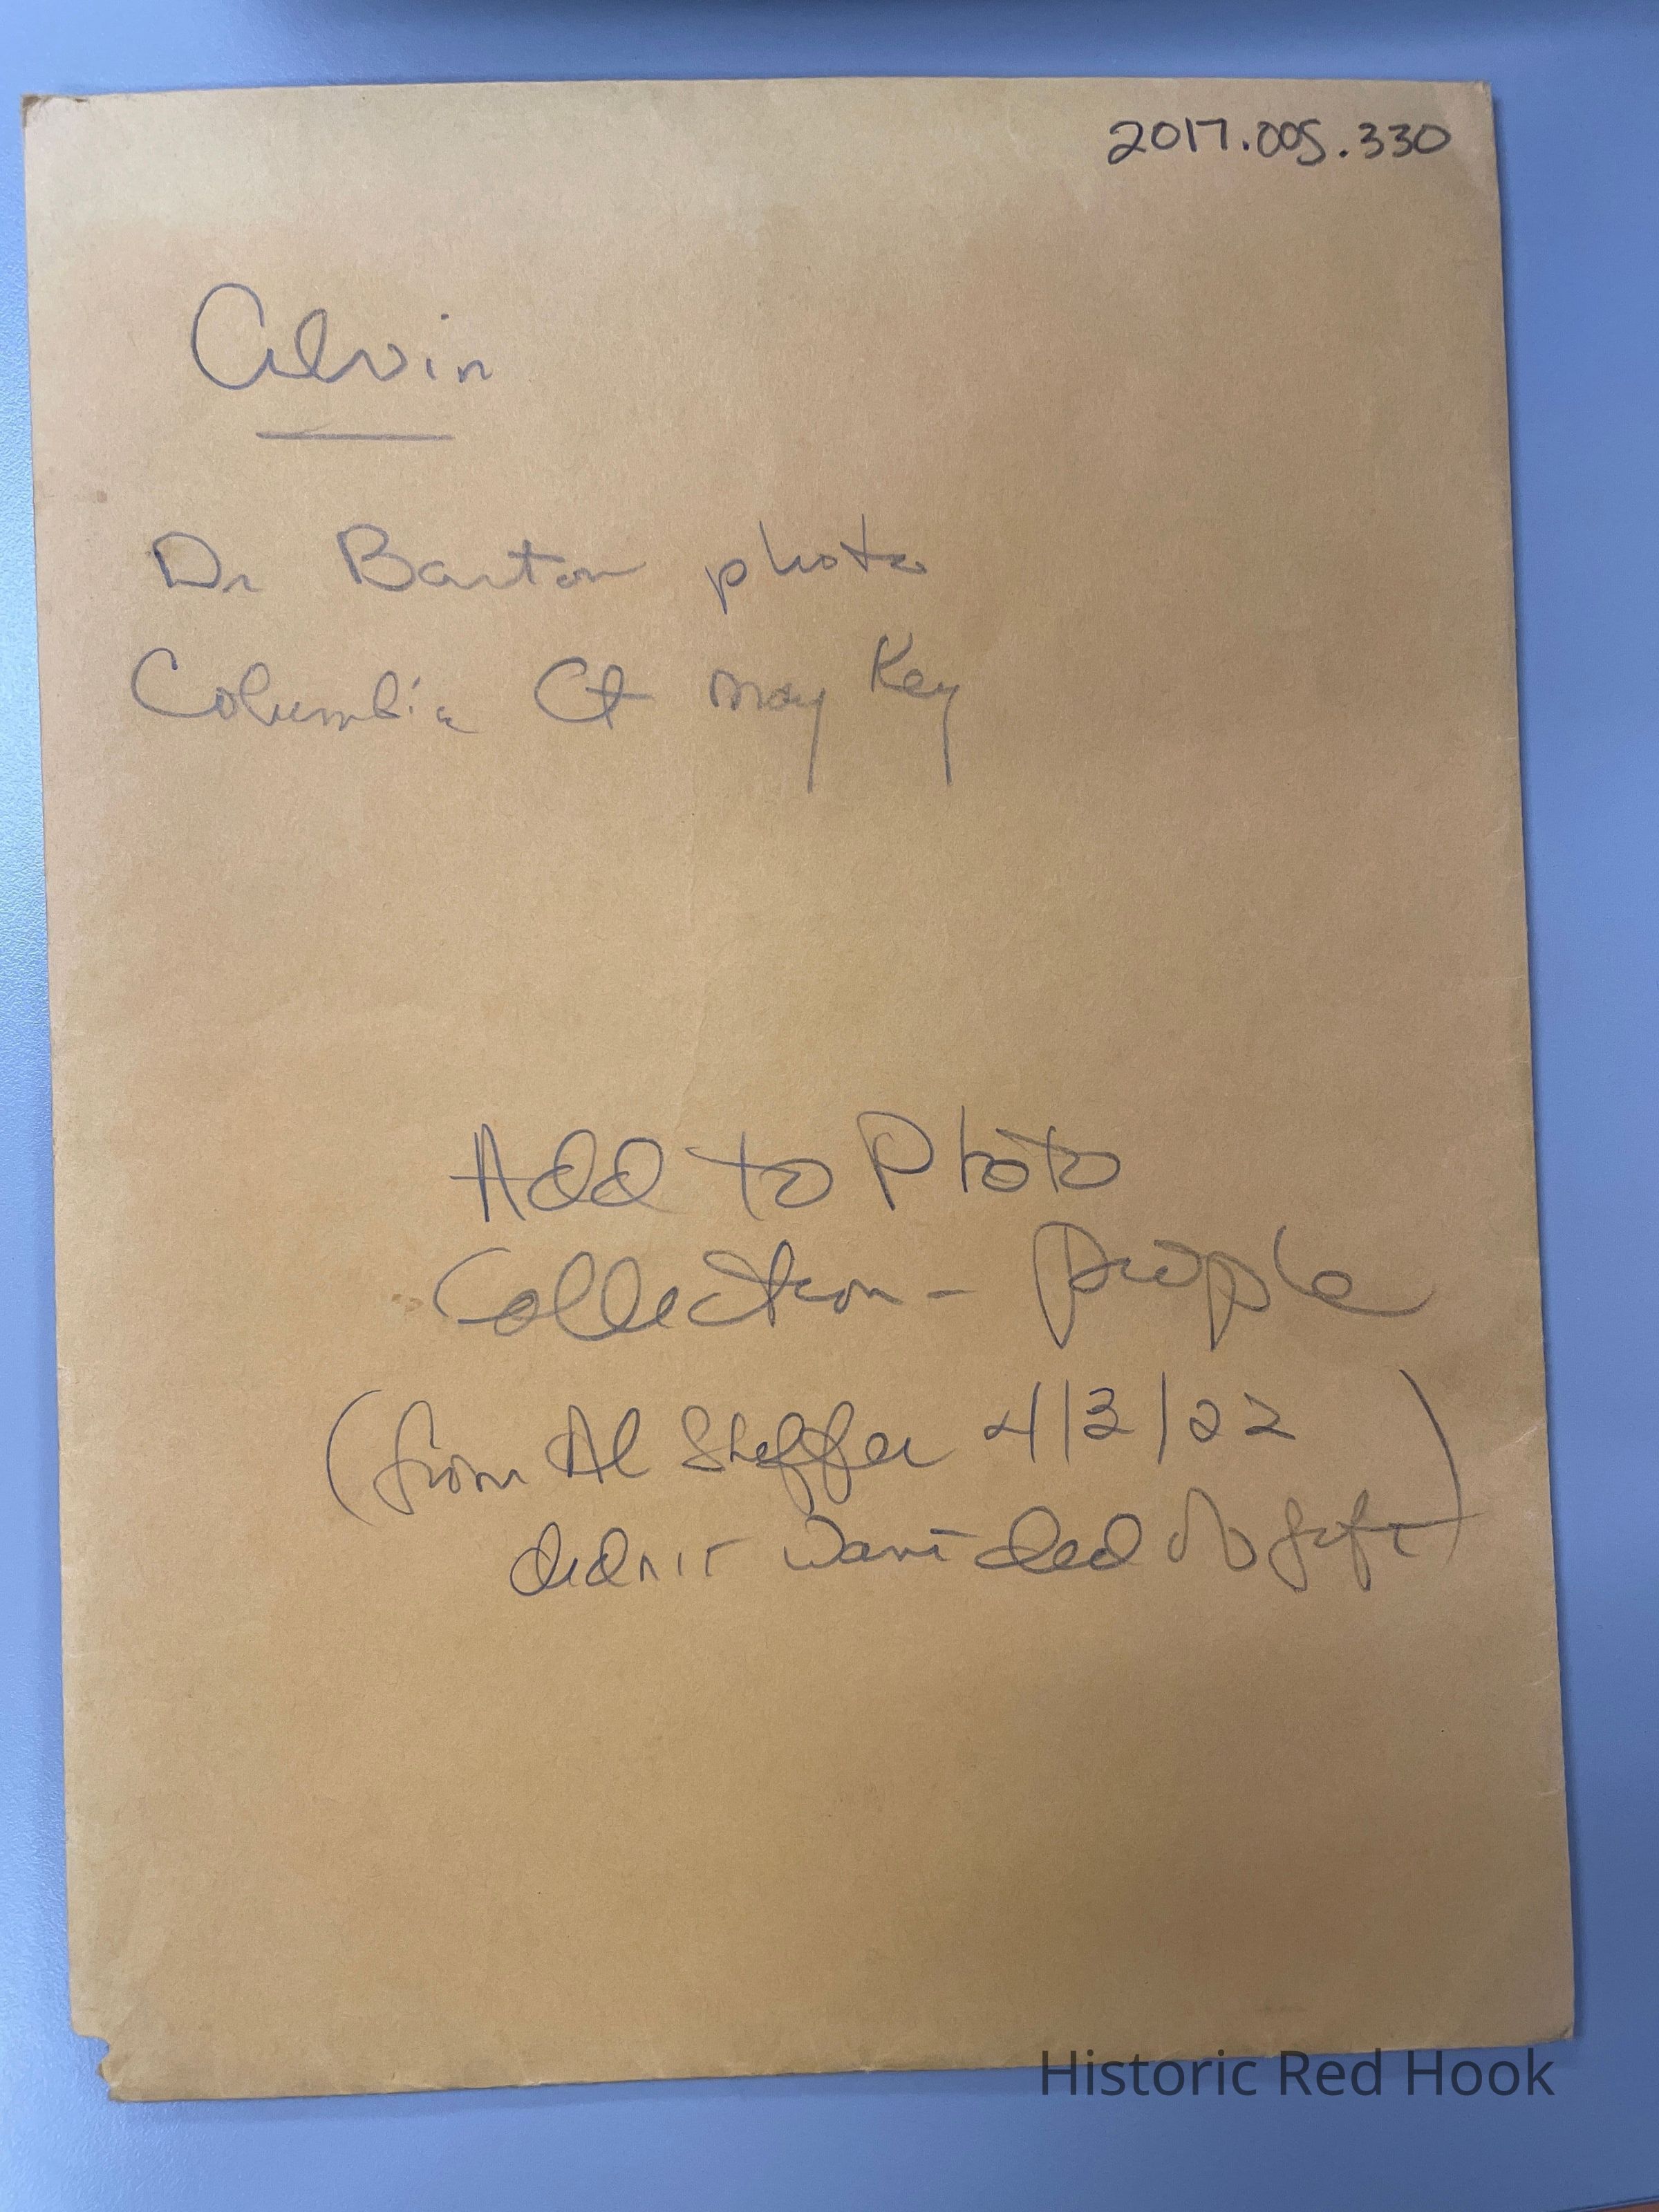 2017.005.330
Calvin
Dr Barton photo
Columbia Ct may Key
Add to Photo
Collection - People
(from Al Sheffer 4/3/22
didn't want deed of gift)
Historic Red Hook